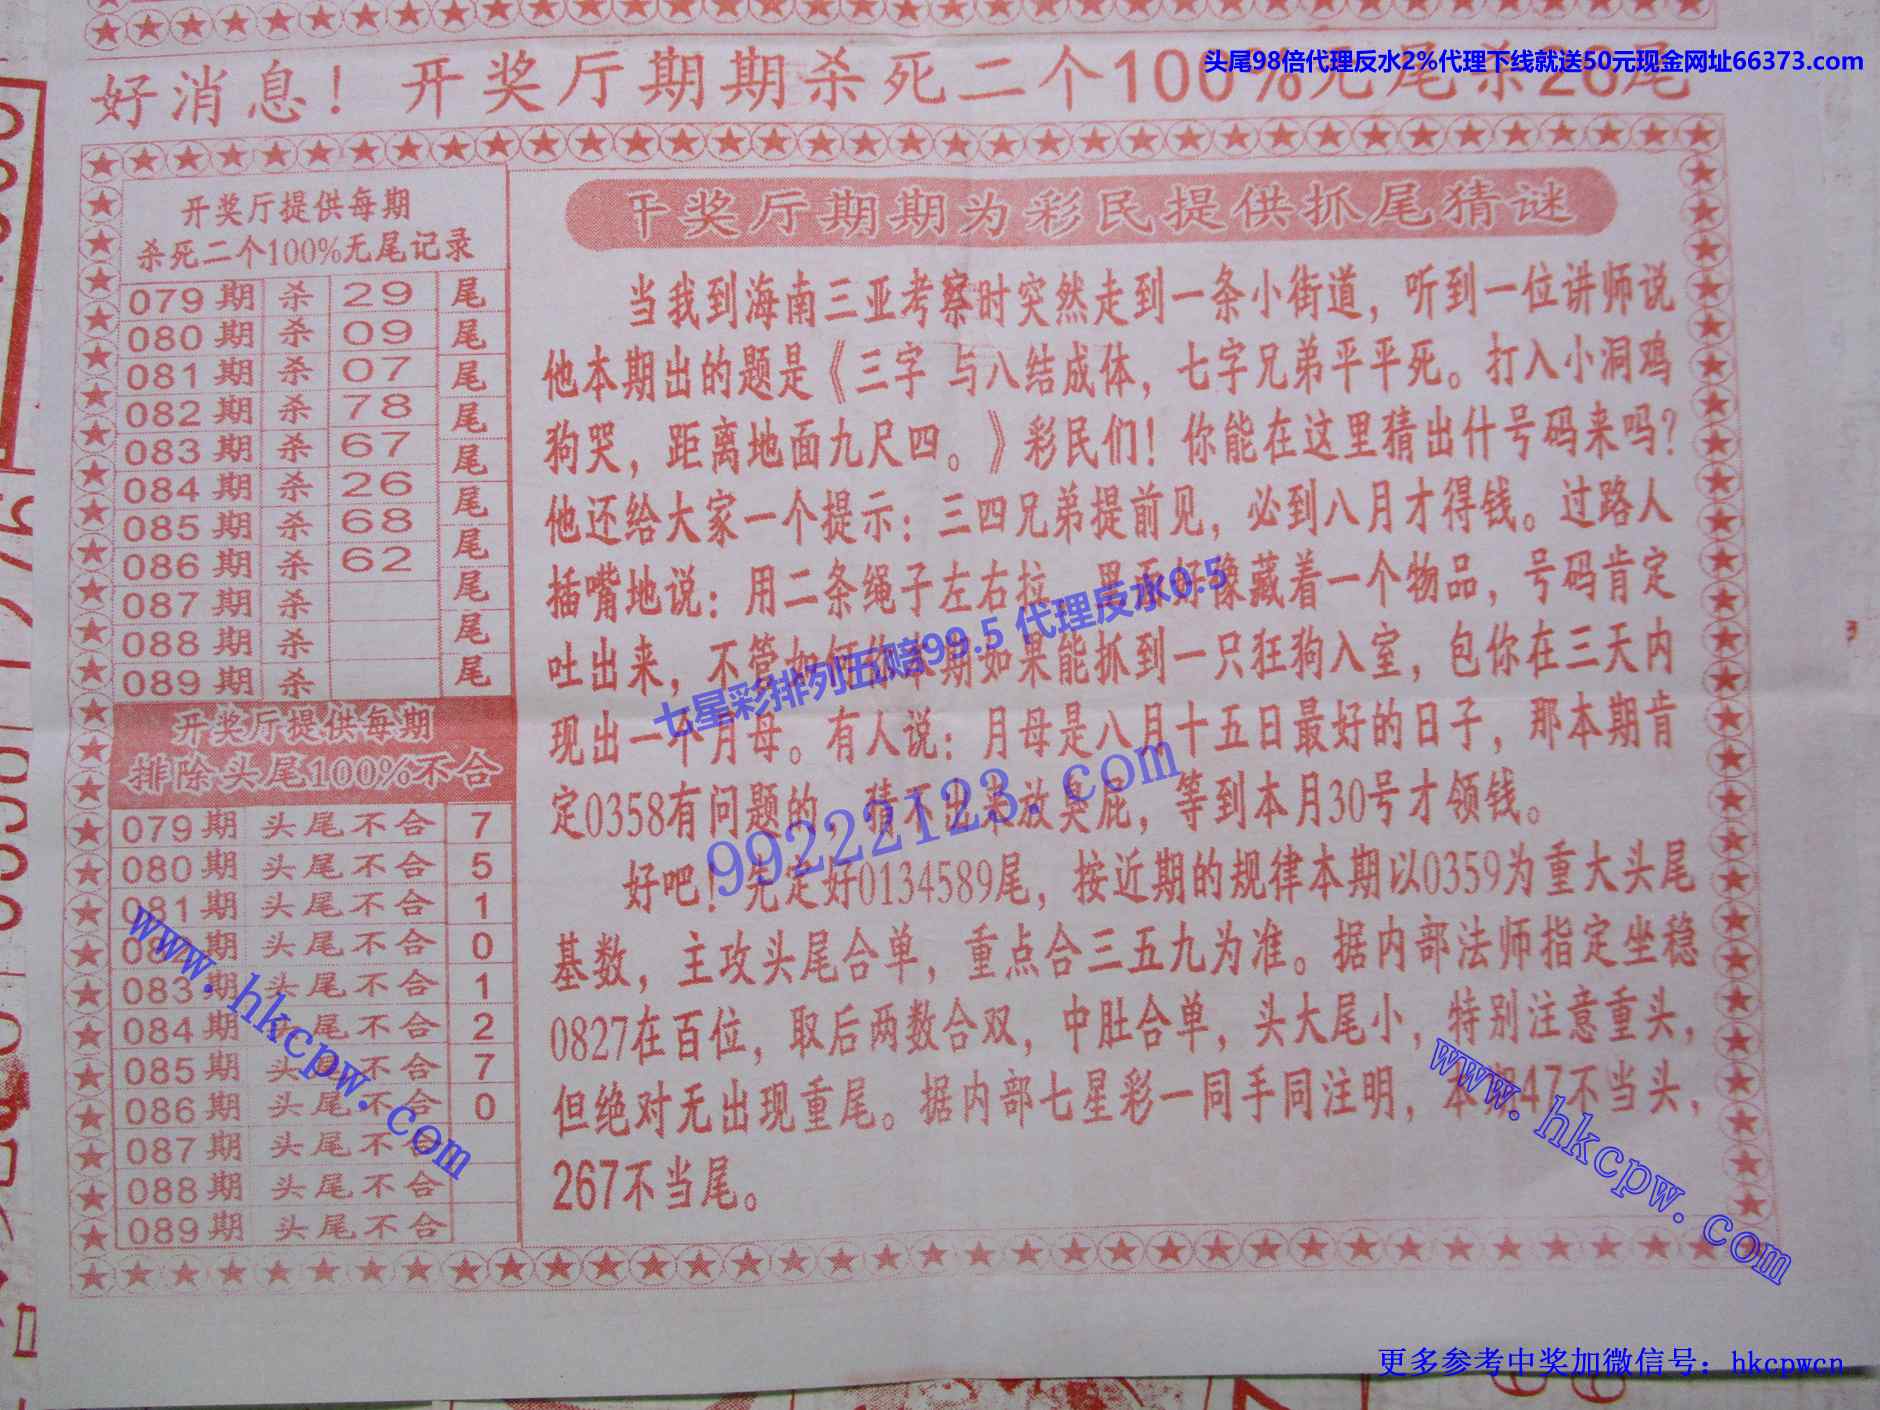 头尾98倍代理反水2%代理下线就送50元现金网址66373.com
好消息！开奖厅期期杀死二个100%无尾杀26尾
开奖厅提供每期
杀死二个100%无尾记录
079期 杀 29 尾
080期 杀 09 尾
081期 杀 07 尾
082期 杀 78 尾
083期 杀 67 尾
084期 杀 26 尾
085期 杀 68 尾
086期 杀 62 尾
087期 杀 尾
088期 杀 尾
089期 杀 尾
开奖厅提供每期
排除头尾100%不合
079期 头尾不合 7
080期 头尾不合 5
081期 头尾不合 1
期 头尾不合 0
083期 头尾不合 1
084期 头尾不合 2
085期 头尾不合 7
086期 头尾不合 0
087期 头尾不合
088期 头尾不合
089期 头尾不合
开奖厅期期为彩民提供抓尾猜谜
当我到海南三亚考察时突然走到一条小街道，听到一位讲师说
他本期出的题是《三字 与八结成体，七字兄弟平平死。打入小洞鸡
狗哭，距离地面九尺四。》彩民们！你能在这里猜出什号码来吗？
他还给大家一个提示：三四兄弟提前见，必到八月才得钱。过路人
插嘴地说：用二条绳子左右拉，好像藏着一个物品，号码肯定
吐出来，不管如何你本期如果能抓到一只狂狗入室，包你在三天内
现出一个月母。有人说：月母是八月十五日最好的日子，那本期肯
定0358有问题的，猜不出来放臭屁，等到本月30号才领钱。
好吧！先定好0134589尾，按近期的规律本期以0359为重大头尾
基数，主攻头尾合单，重点合三五九为准。据内部法师指定坐稳
0827在百位，取后两数合双，中肚合单，头大尾小，特别注意重头，
但绝对无出现重尾。据内部七星彩一同手同注明，本期47不当头，
267不当尾。
七星彩排列五赔99.5 代理反水0.5
99222123.com
www.hkcpw.com
www.hkcpw.com
更多参考中奖加微信号：hkcpwcn